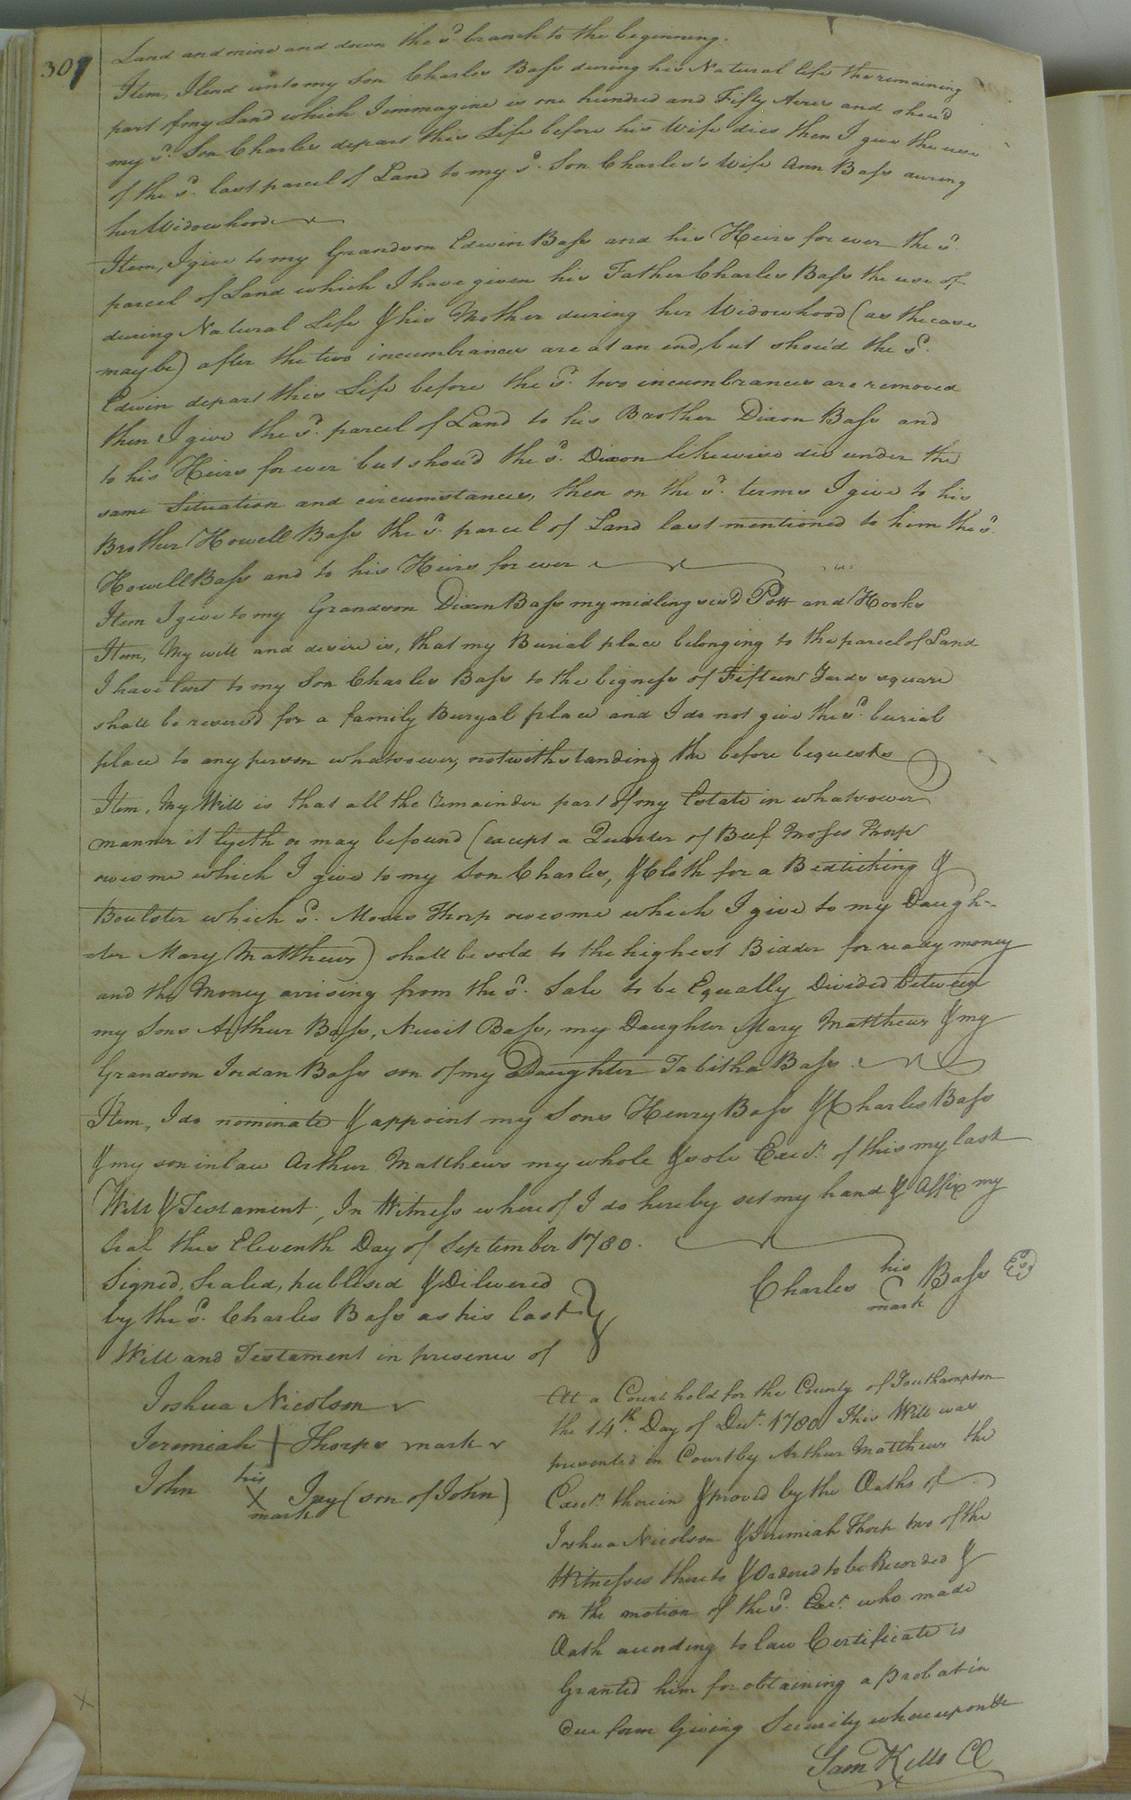 307
Land and mine and down the sd. branch to the beginning.
Item, I lend unto my Son Charles Bass during his Natural life the remaining
part of my Land which I immagine is one hundred and Fifty Acres and shou'd
my sd. Son Charles depart this Life before his Wife dies then I give the use
of the sd. last parcel of Land to my sd. Son Charles's Wife Ann Bass during
her Widowhood
Item, I give to my Grandson Edwin Bass and his Heirs for ever the sd.
parcel of Land which I have given his Father Charles Bass the use of
during Natural Life & his Mother during her Widowhood (as the case
may be) after the two incumbrances are at an end, but shou'd the sd.
Edwin depart this Life before the sd. two incumbrances are removed
then I give the sd. parcel of Land to his Brother Dixon Bass and
to his Heirs for ever but shou'd the sd. Dixon likewise die under the
same Situation and circumstances, then on the sd. terms I give to his
Brother Howell Bass the sd. parcel of Land last mentioned to him the sd.
Howell Bass and to his Heirs for ever
Item I give to my Grandson Dixon Bass my midling sis'd Pott and Hooks
Item, My will and desire is, that my Burial place belonging to the parcel of Land
I have lent to my Son Charles Bass to the bigness of Fifteen Yards square
shall be reserv'd for a family Buryal place and I do not give the sd. burial
place to any person whatsoever, notwithstanding the before bequests
Item, My Will is that all the remainder part of my Estate in whatsoever
manner it lyeth or may be found (except a Quarter of Beef Moses Thorp
owes me which I give to my Son Charles, & Cloth for a Bedticking &
Boulster which sd. Moses Thorp owes me which I give to my Daugh-
-ter Mary Matthews) shall be sold to the highest Bidder for ready money
and the Money arrising from the sd. Sale to be Equally Divided between
my Sons Arthur Bass, Newit Bass, my Daughter Mary Matthews & my
Grandson Jordan Bass son of my Daughter Tabitha Bass.
Item, I do nominate & appoint my Sons Henry Bass & Charles Bass
& my son in law Arthur Matthews my whole & sole Exrs. of this my last
Will & Testament, In Witness where of I do hereby set my hand & Affix my
Seal this Eleventh Day of September 1780.
Signed, Sealed, publised & Delivered
by the sd. Charles Bass as his last
Will and Testament in presence of
his
Charles C Bass
mark
Joshua Nicolson
Jeremiah + Thorps mark
his
John X Ivy (son of John)
mark
At a Court held for the County of Southampton
the 14th. Day of Decr. 1780 This Will was
presented in Court by Arthur Matthews the
Exetr. therein & proved by the Oaths of
Joshua Nicolson & Jeremiah Thorp two of the
Witnesses thereto & Ordered to be Recorded &
on the motion of the sd. Exer. who made
Oath according to law Certificate is
Granted him for obtaining a Probat in
due form Giving Security whereupon &c
Sam Kello CC